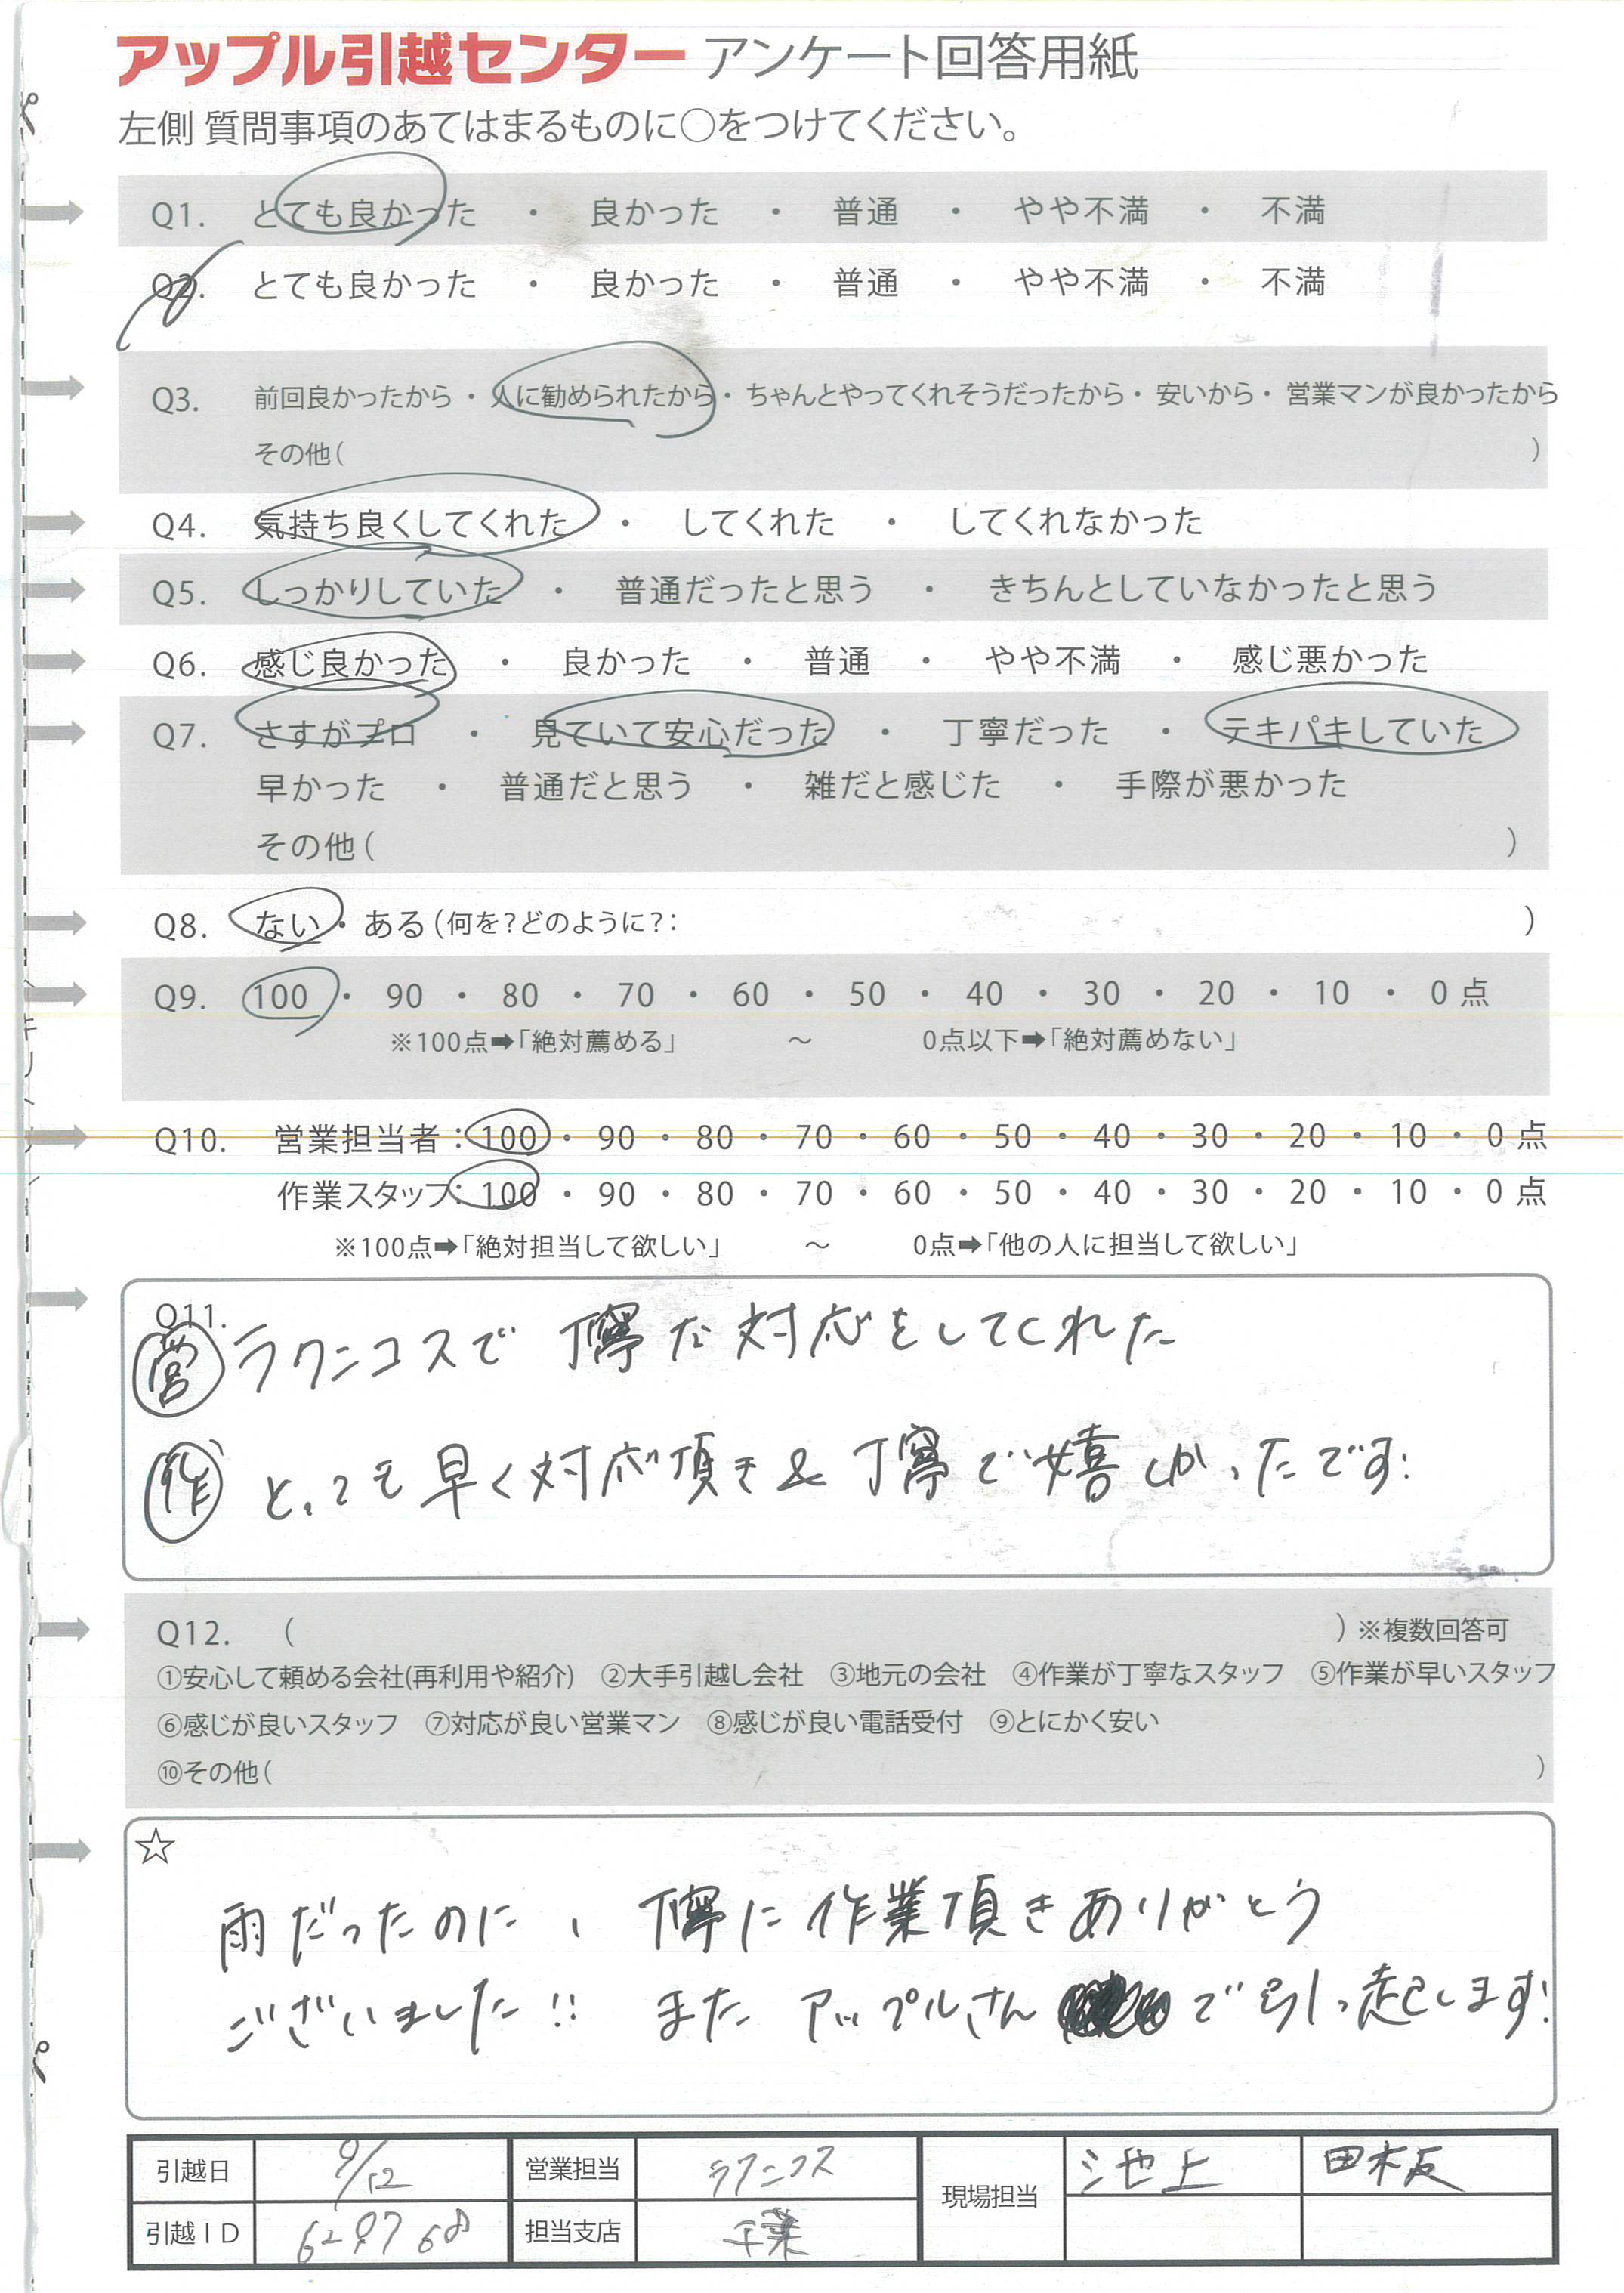 アップル引越センター アンケート回答用紙
左側 質問事項のあてはまるものに○をつけてください。
Q1. とても良かった ・ 良かった ・ 普通 ・ やや不満 ・ 不満
Q2. とても良かった ・ 良かった ・ 普通 ・ やや不満 ・ 不満
Q3. 前回良かったから・人に勧められたから・ちゃんとやってくれそうだったから・安いから・営業マンが良かったから
その他( )
Q4. 気持ち良くしてくれた ・ してくれた ・ してくれなかった
Q5. しっかりしていた ・ 普通だったと思う ・ きちんとしていなかったと思う
Q6. 感じ良かった ・ 良かった ・ 普通 ・ やや不満 ・ 感じ悪かった
Q7. さすがプロ ・ 見ていて安心だった ・ 丁寧だった ・ テキパキしていた
早かった ・ 普通だと思う ・ 雑だと感じた ・ 手際が悪かった
その他( )
Q8. ない・ある(何を?どのように?: )
Q9. 100 ・ 90 ・ 80 ・ 70 ・ 60 ・ 50 ・ 40 ・ 30 ・ 20 ・ 10 ・ 0 点
※100点➡「絶対薦める」 ～ 0点以下➡「絶対薦めない」
Q10. 営業担当者:100・90・80・70・60・50・40・30・20・10・0 点
作業スタッフ:100・90・80・70・60・50・40・30・20・10・0 点
※100点➡「絶対担当して欲しい」 ～ 0点➡「他の人に担当して欲しい」
Q11.
営 ラクニコスで 丁寧な対応をしてくれた
作 とっても早く対応頂き&丁寧で嬉しかったです!
Q12. ( )※複数回答可
①安心して頼める会社(再利用や紹介) ②大手引越し会社 ③地元の会社 ④作業が丁寧なスタッフ ⑤作業が早いスタッフ
⑥感じが良いスタッフ ⑦対応が良い営業マン ⑧感じが良い電話受付 ⑨とにかく安い
⑩その他( )
☆
雨だったのに、丁寧に作業頂きありがとう
ございました!! また アップルさん で引っ起します!
引越日 9/12 営業担当 ラクニコス 現場担当 池上 田木坂
引越ID 629768 担当支店 千葉